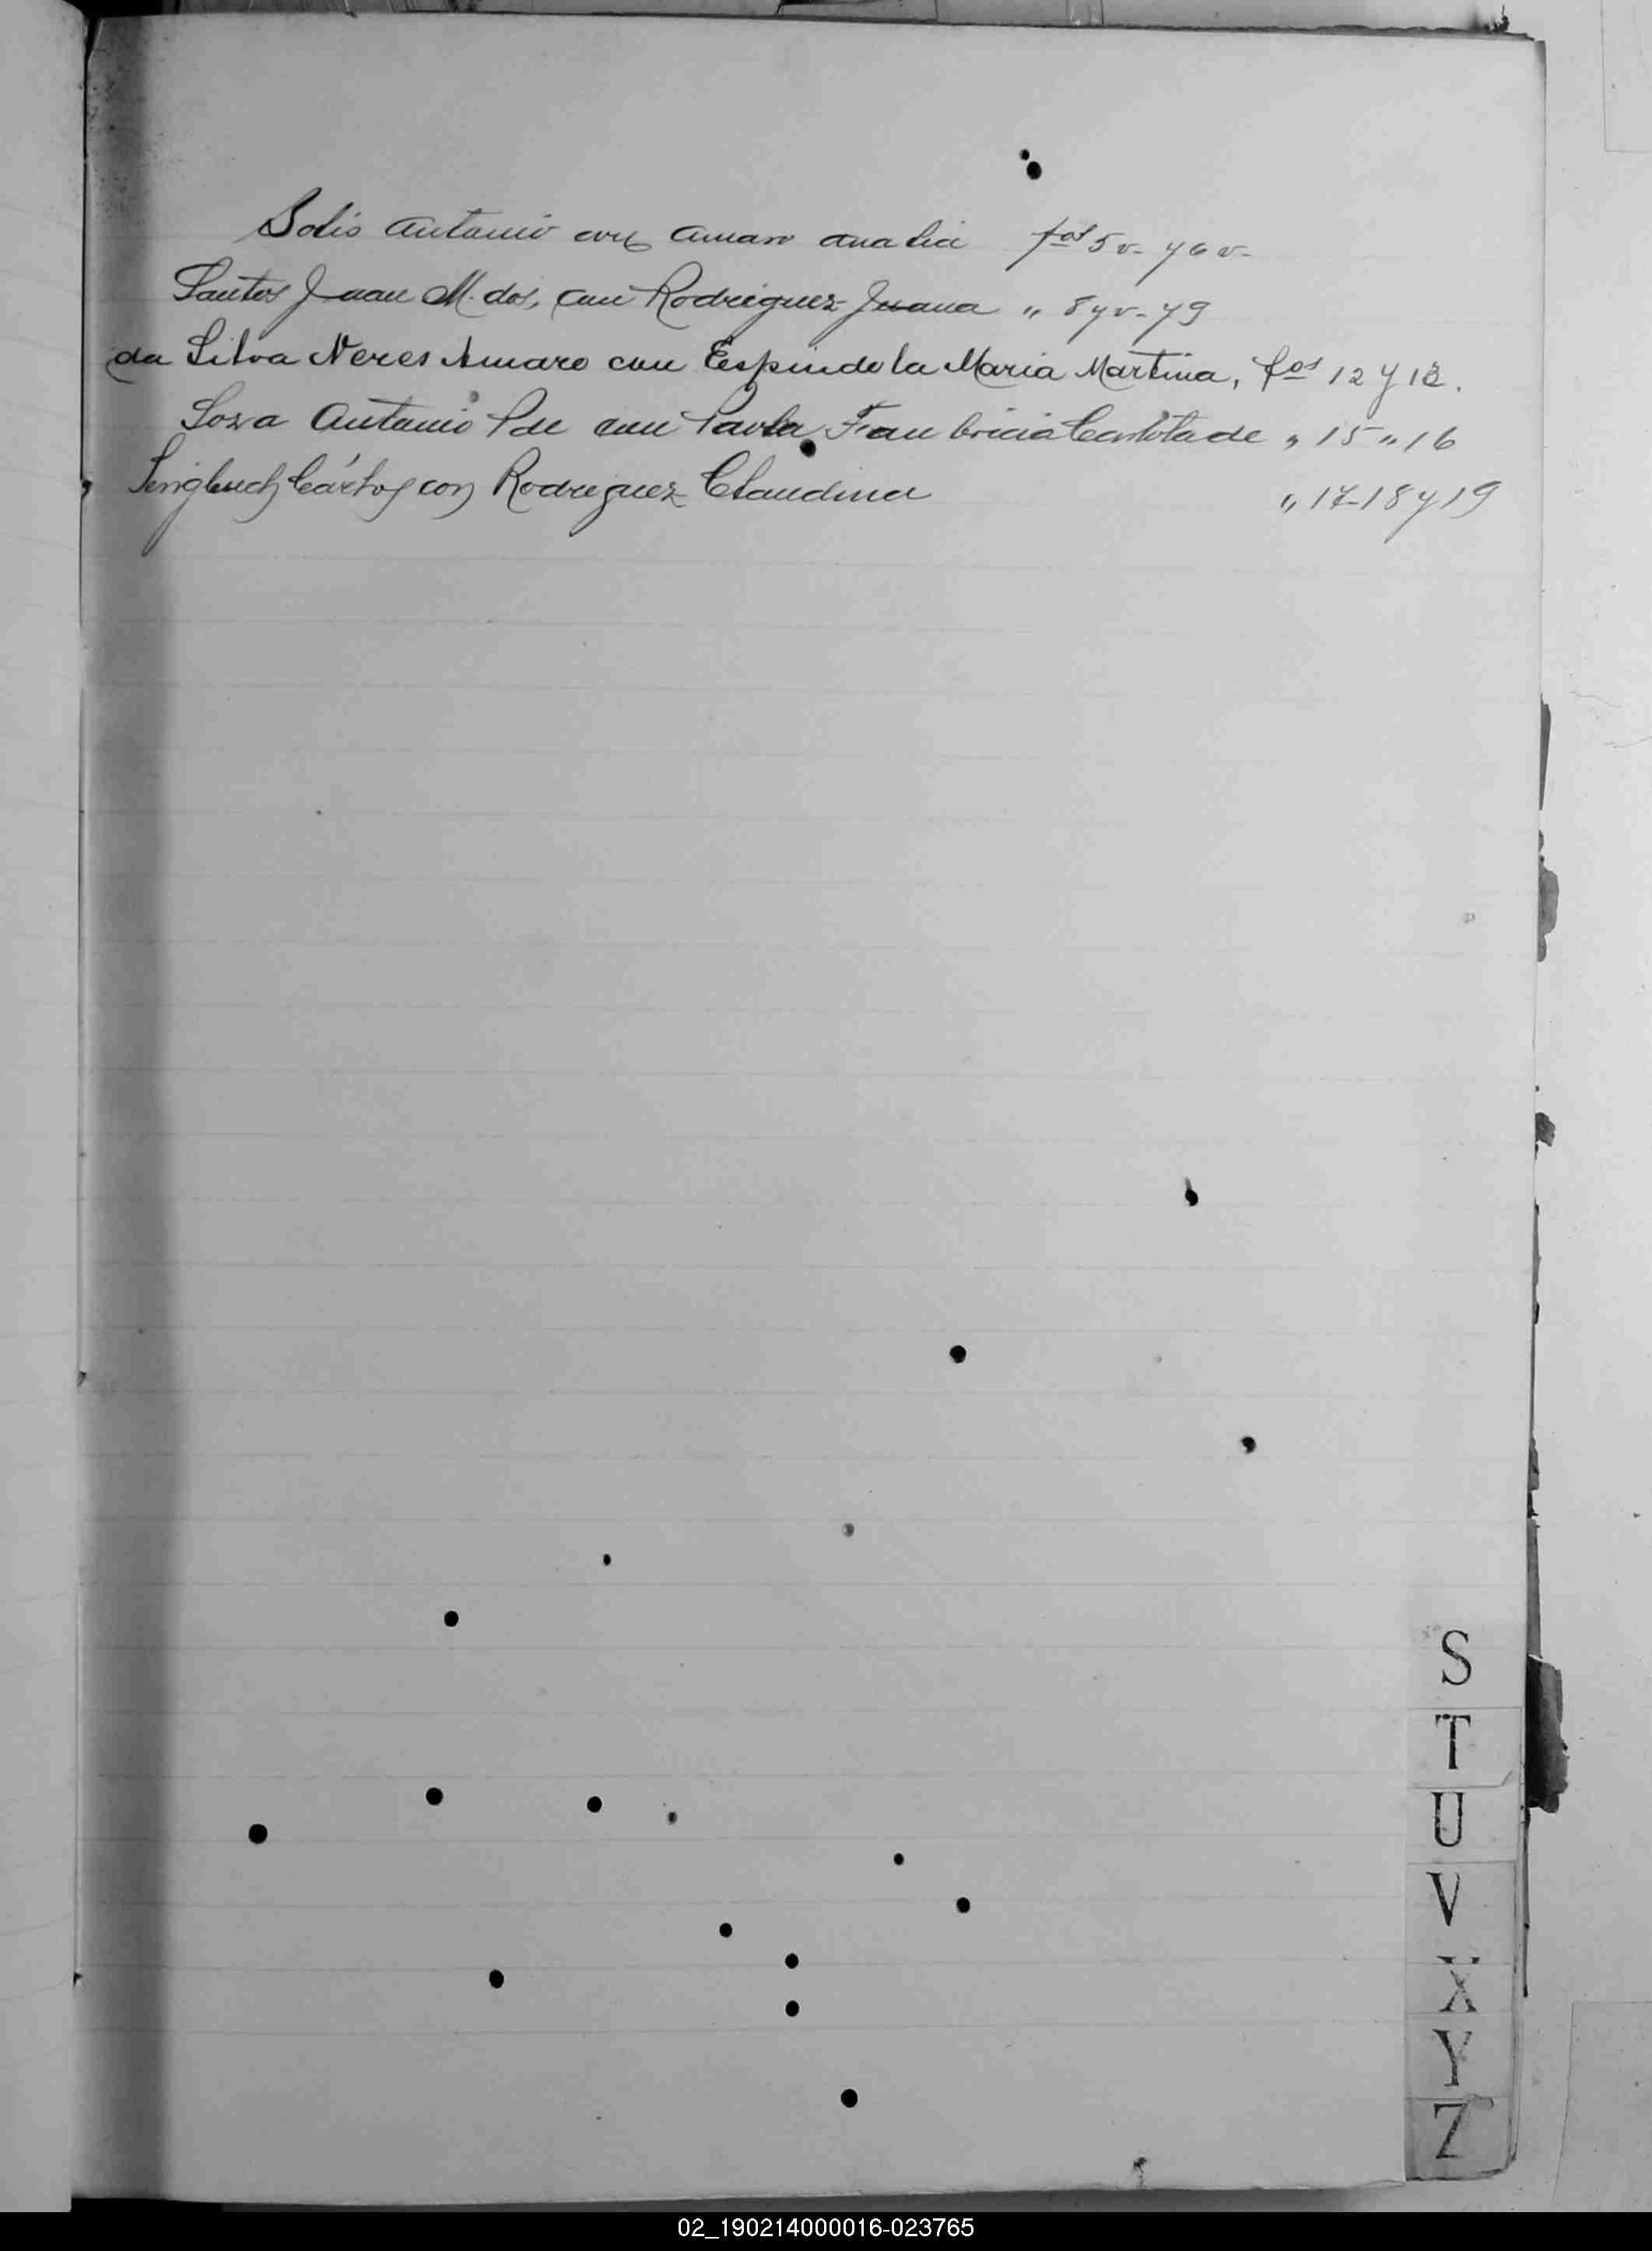 Solis Antonio con Amaro Analia fos 5 v. y 6 v.
Santos Juan M. dos, con Rodriguez Juana " 8 y v. y 9
da Silva Neres Amaro con Espindola Maria Martina, fos 12 y 13.
Soza Antonio P de con Carlota de " 15 " 16
Carlos con Rodriguez Claudina " 17-18 y 19
S
T
U
V
X
Y
Z
02_190214000016-023765